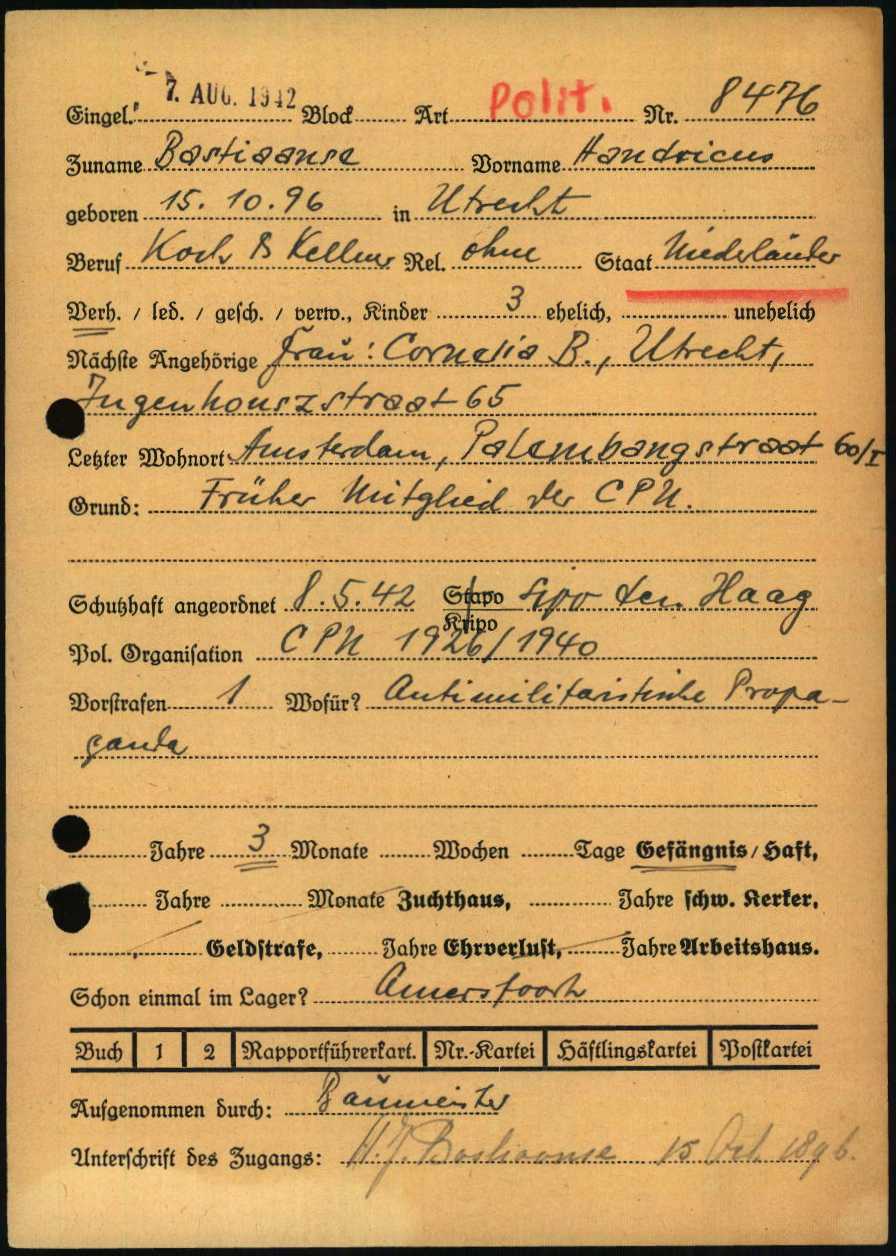 Eingel. 7. AUG. 1942 Block Art Polit. Nr. 8476
Zuname Bastiaanse Vorname Handricus
geboren 15. 10. 96 in Utrecht
Beruf Koch & Kellner Rel. ohne Staat Niederländer
Verh. / led. / gesch. / verw., Kinder 3 ehelich, unehelich
Nächste Angehörige Frau: Cornelia B., Utrecht,
Ingenhouszstraat 65
Letzter Wohnort Amsterdam, Palembangstraat 60/I
Grund: Früher Mitglied der CPN.
Schutzhaft angeordnet 8. 5. 42 Stapo Sipo den Haag
Kripo
Pol. Organisation CPN 1926/1940
Vorstrafen 1 Wofür? Antimilitaristische Propa-
ganda
Jahre 3 Monate Wochen Tage Gefängnis / Haft,
Jahre Monate Zuchthaus, Jahre schw. Kerker,
Geldstrafe, Jahre Ehrverlust, Jahre Arbeitshaus.
Schon einmal im Lager? Amersfoort
Buch 1 2 Rapportführerkart. Nr.-Kartei Häftlingskartei Postkartei
Aufgenommen durch: Baumeister
Unterschrift des Zugangs: H. J. Bastiaanse 15 Oct 1896.